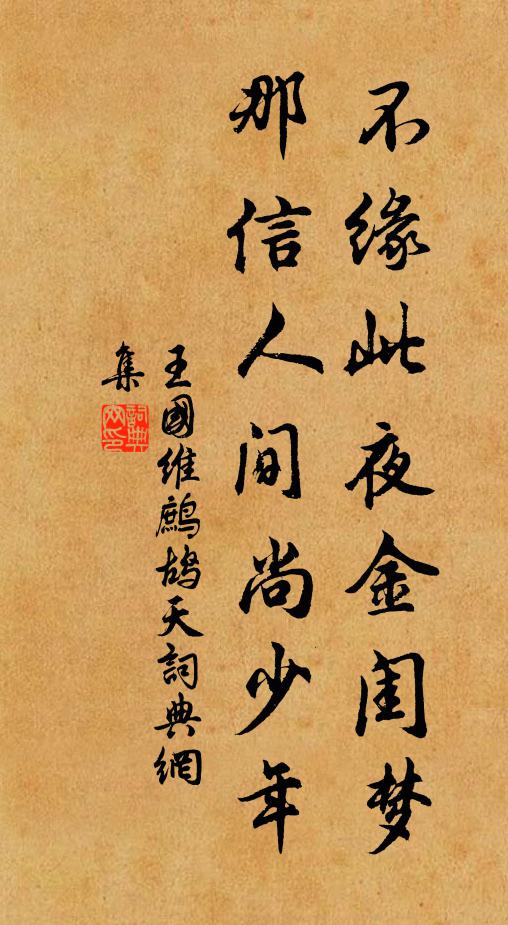 不缘此夜金闺梦
那信人间尚少年
王國维鹧鸪天詞典網
集
詞典
网印